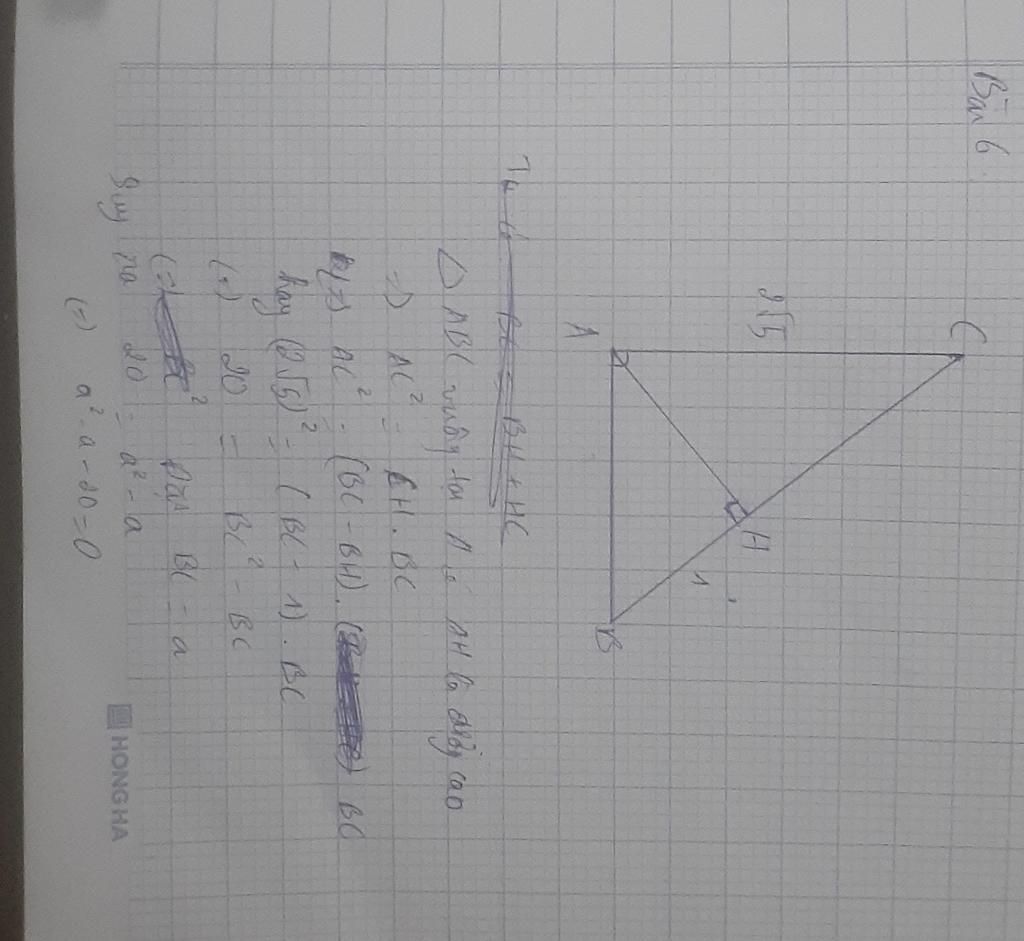 Bài 6.
C
2√5
A
H
1
B
BH + HC
△ ABC vuông tại A có AH là đường cao
=> AC² = CH. BC
=> AC² = (BC - BH). BC
hay (2√5)² = (BC - 1). BC
(=) 20 = BC² - BC
(=) Đặt BC = a
Suy ra 20 = a² - a
(=) a² - a - 20 = 0
HONG HA